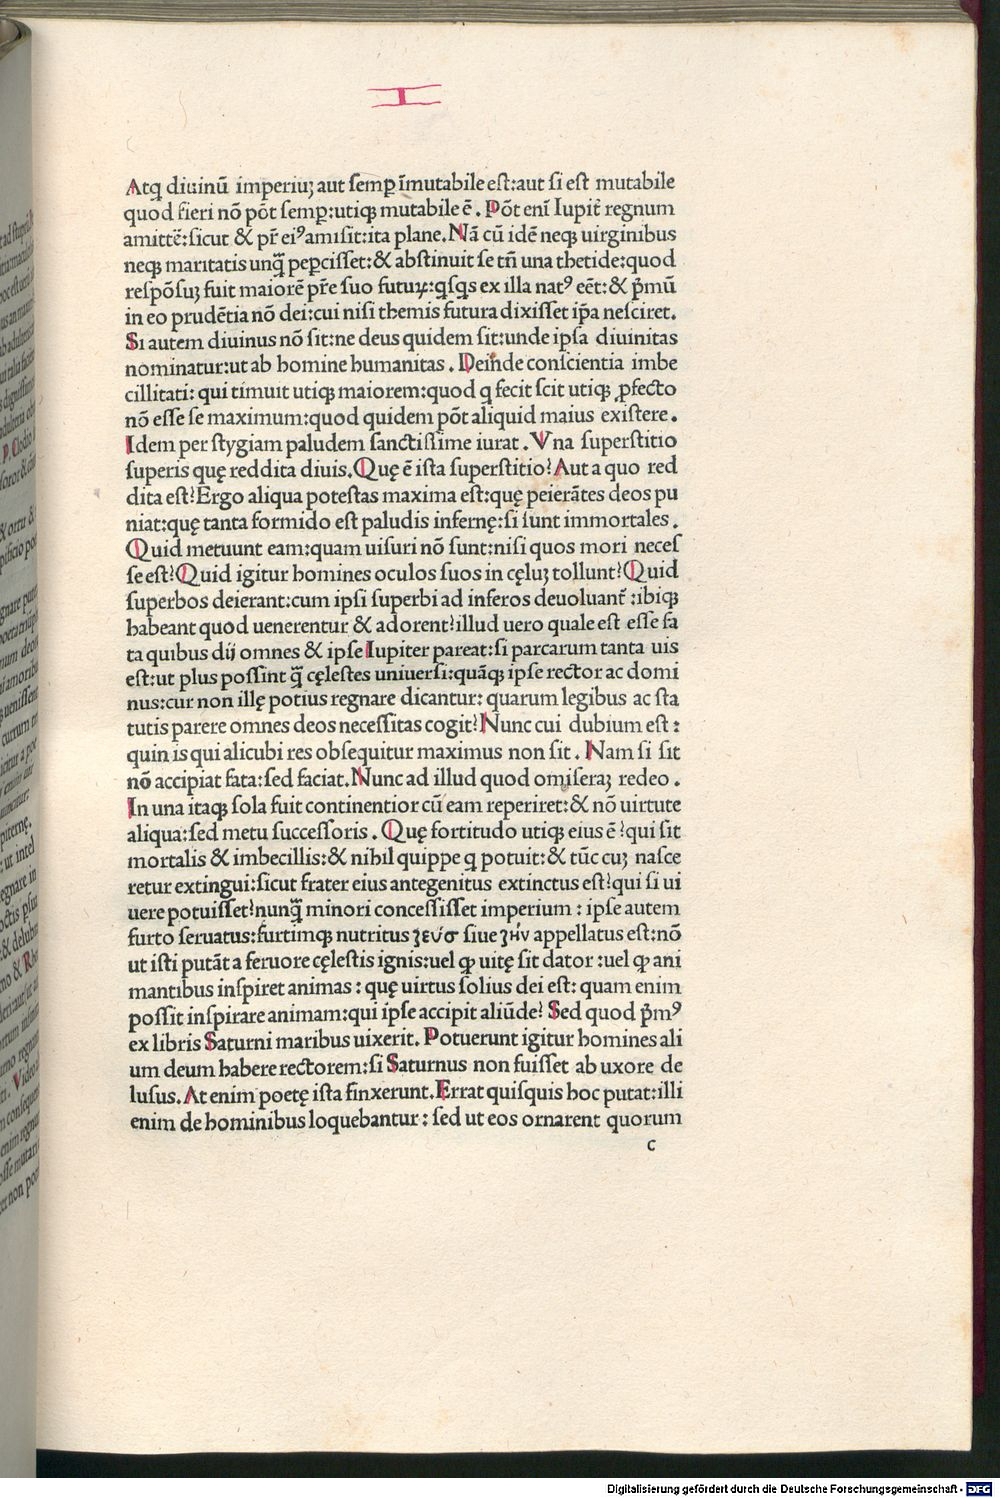 I
Atq diuinū imperiuʒ aut semꝑ īmutabile est:aut si est mutabile
quod fieri nō pōt semꝑ:utiqꝫ mutabile ē. Pōt enī Iupiṫ regnum
amittē:sicut & pr̄ eiꝰ amisit:ita plane.Nā cū idē neqꝫ uirginibus
neqꝫ maritatis unq̄ peꝑcisset:& abstinuit se tn̄ una thetide:quod
respōsuʒ fuit maiorē pr̄e suo futuꝝ:qsqs ex illa natꝰ eēt:& p̄mū
in eo prudētia nō dei:cui nisi themis futura dixisset ip̄a nesciret.
Si autem diuinus nō sit:ne deus quidem sit:unde ipsa diuinitas
nominatur:ut ab homine humanitas. Deinde conscientia imbe
cillitati: qui timuit utiqꝫ maiorem:quod q fecit scit utiqꝫ ꝓfecto
nō esse se maximum:quod quidem pōt aliquid maius existere.
Idem per stygiam paludem sanctissime iurat. Vna superstitio
superis quę reddita diuis.Quę ē ista superstitio? Aut a quo red
dita est? Ergo aliqua potestas maxima est:quę peierātes deos pu
niat:quę tanta formido est paludis infernę:si sunt immortales.
Quid metuunt eam:quam uisuri nō sunt:nisi quos mori neces
se est? Quid igitur homines oculos suos in cęluʒ tollunt? Quid
superbos deierant:cum ipsi superbi ad inferos deuoluant̄ :ibiqꝫ
habeant quod uenerentur & adorent? illud uero quale est esse fa
ta quibus dij omnes & ipse Iupiter pareat:si parcarum tanta uis
est:ut plus possint q̄ cęlestes uniuersi:quāqꝫ ipse rector ac domi
nus:cur non illę potius regnare dicantur: quarum legibus ac sta
tutis parere omnes deos necessitas cogit? Nunc cui dubium est :
quin is qui alicubi res obsequitur maximus non sit. Nam si sit
nō accipiat fata:sed faciat. Nunc ad illud quod omiseraʒ redeo.
In una itaqꝫ sola fuit continentior cū eam reperiret:& nō uirtute
aliqua:sed metu successoris. Quę fortitudo utiqꝫ eius ē? qui sit
mortalis & imbecillis:& nihil quippe q potuit:& tūc cuʒ nasce
retur extingui:sicut frater eius antegenitus extinctus est? qui si ui
uere potuisset? nunq̄ minori concessisset imperium : ipse autem
furto seruatus:furtimqꝫ nutritus ʒεύσ siue ʒήν appellatus est:nō
ut isti putāt a feruore cęlestis ignis:uel ꝙ uitę sit dator :uel ꝙ ani
mantibus inspiret animas: quę uirtus solius dei est: quam enim
possit inspirare animam:qui ipse accipit aliūde? Sed quod p̄mꝰ
ex libris Saturni maribus uixerit. Potuerunt igitur homines ali
um deum habere rectorem:si Saturnus non fuisset ab uxore de
lusus. At enim poetę ista finxerunt. Errat quisquis hoc putat:illi
enim de hominibus loquebantur: sed ut eos ornarent quorum
c
Digitalisierung gefördert durch die Deutsche Forschungsgemeinschaft - DFG